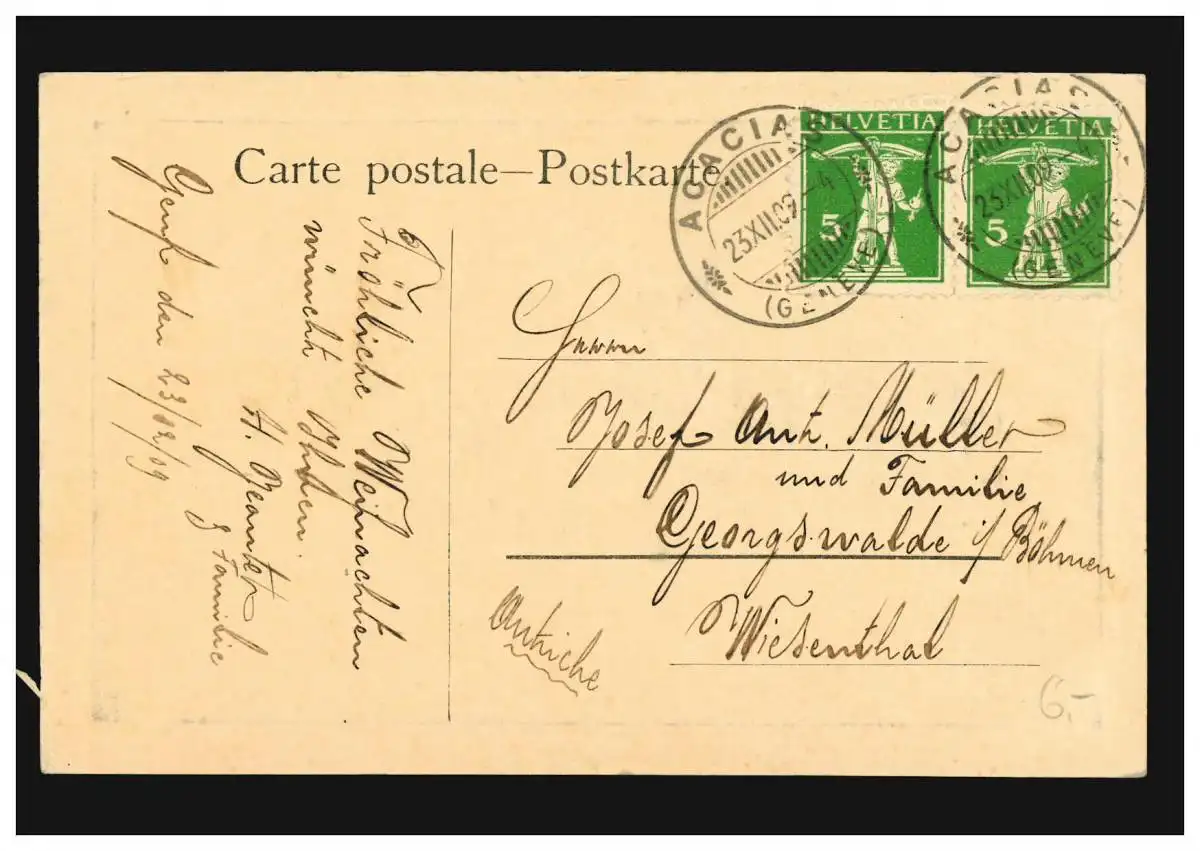 Carte postale—Postkarte
HELVETIA
5
HELVETIA
5
ACACIAS
23XII.09.–4
(GENÈVE)
ACACIAS
23XII.09.–4
(GENÈVE)
Genf den 23/12/09
Fröhliche Weihnachten
wünscht Ihnen.
& Familie
Herrn
Josef Ant. Müller
und Familie
Georgswalde i/ Böhmen
Wiesenthal
Autriche
6.-